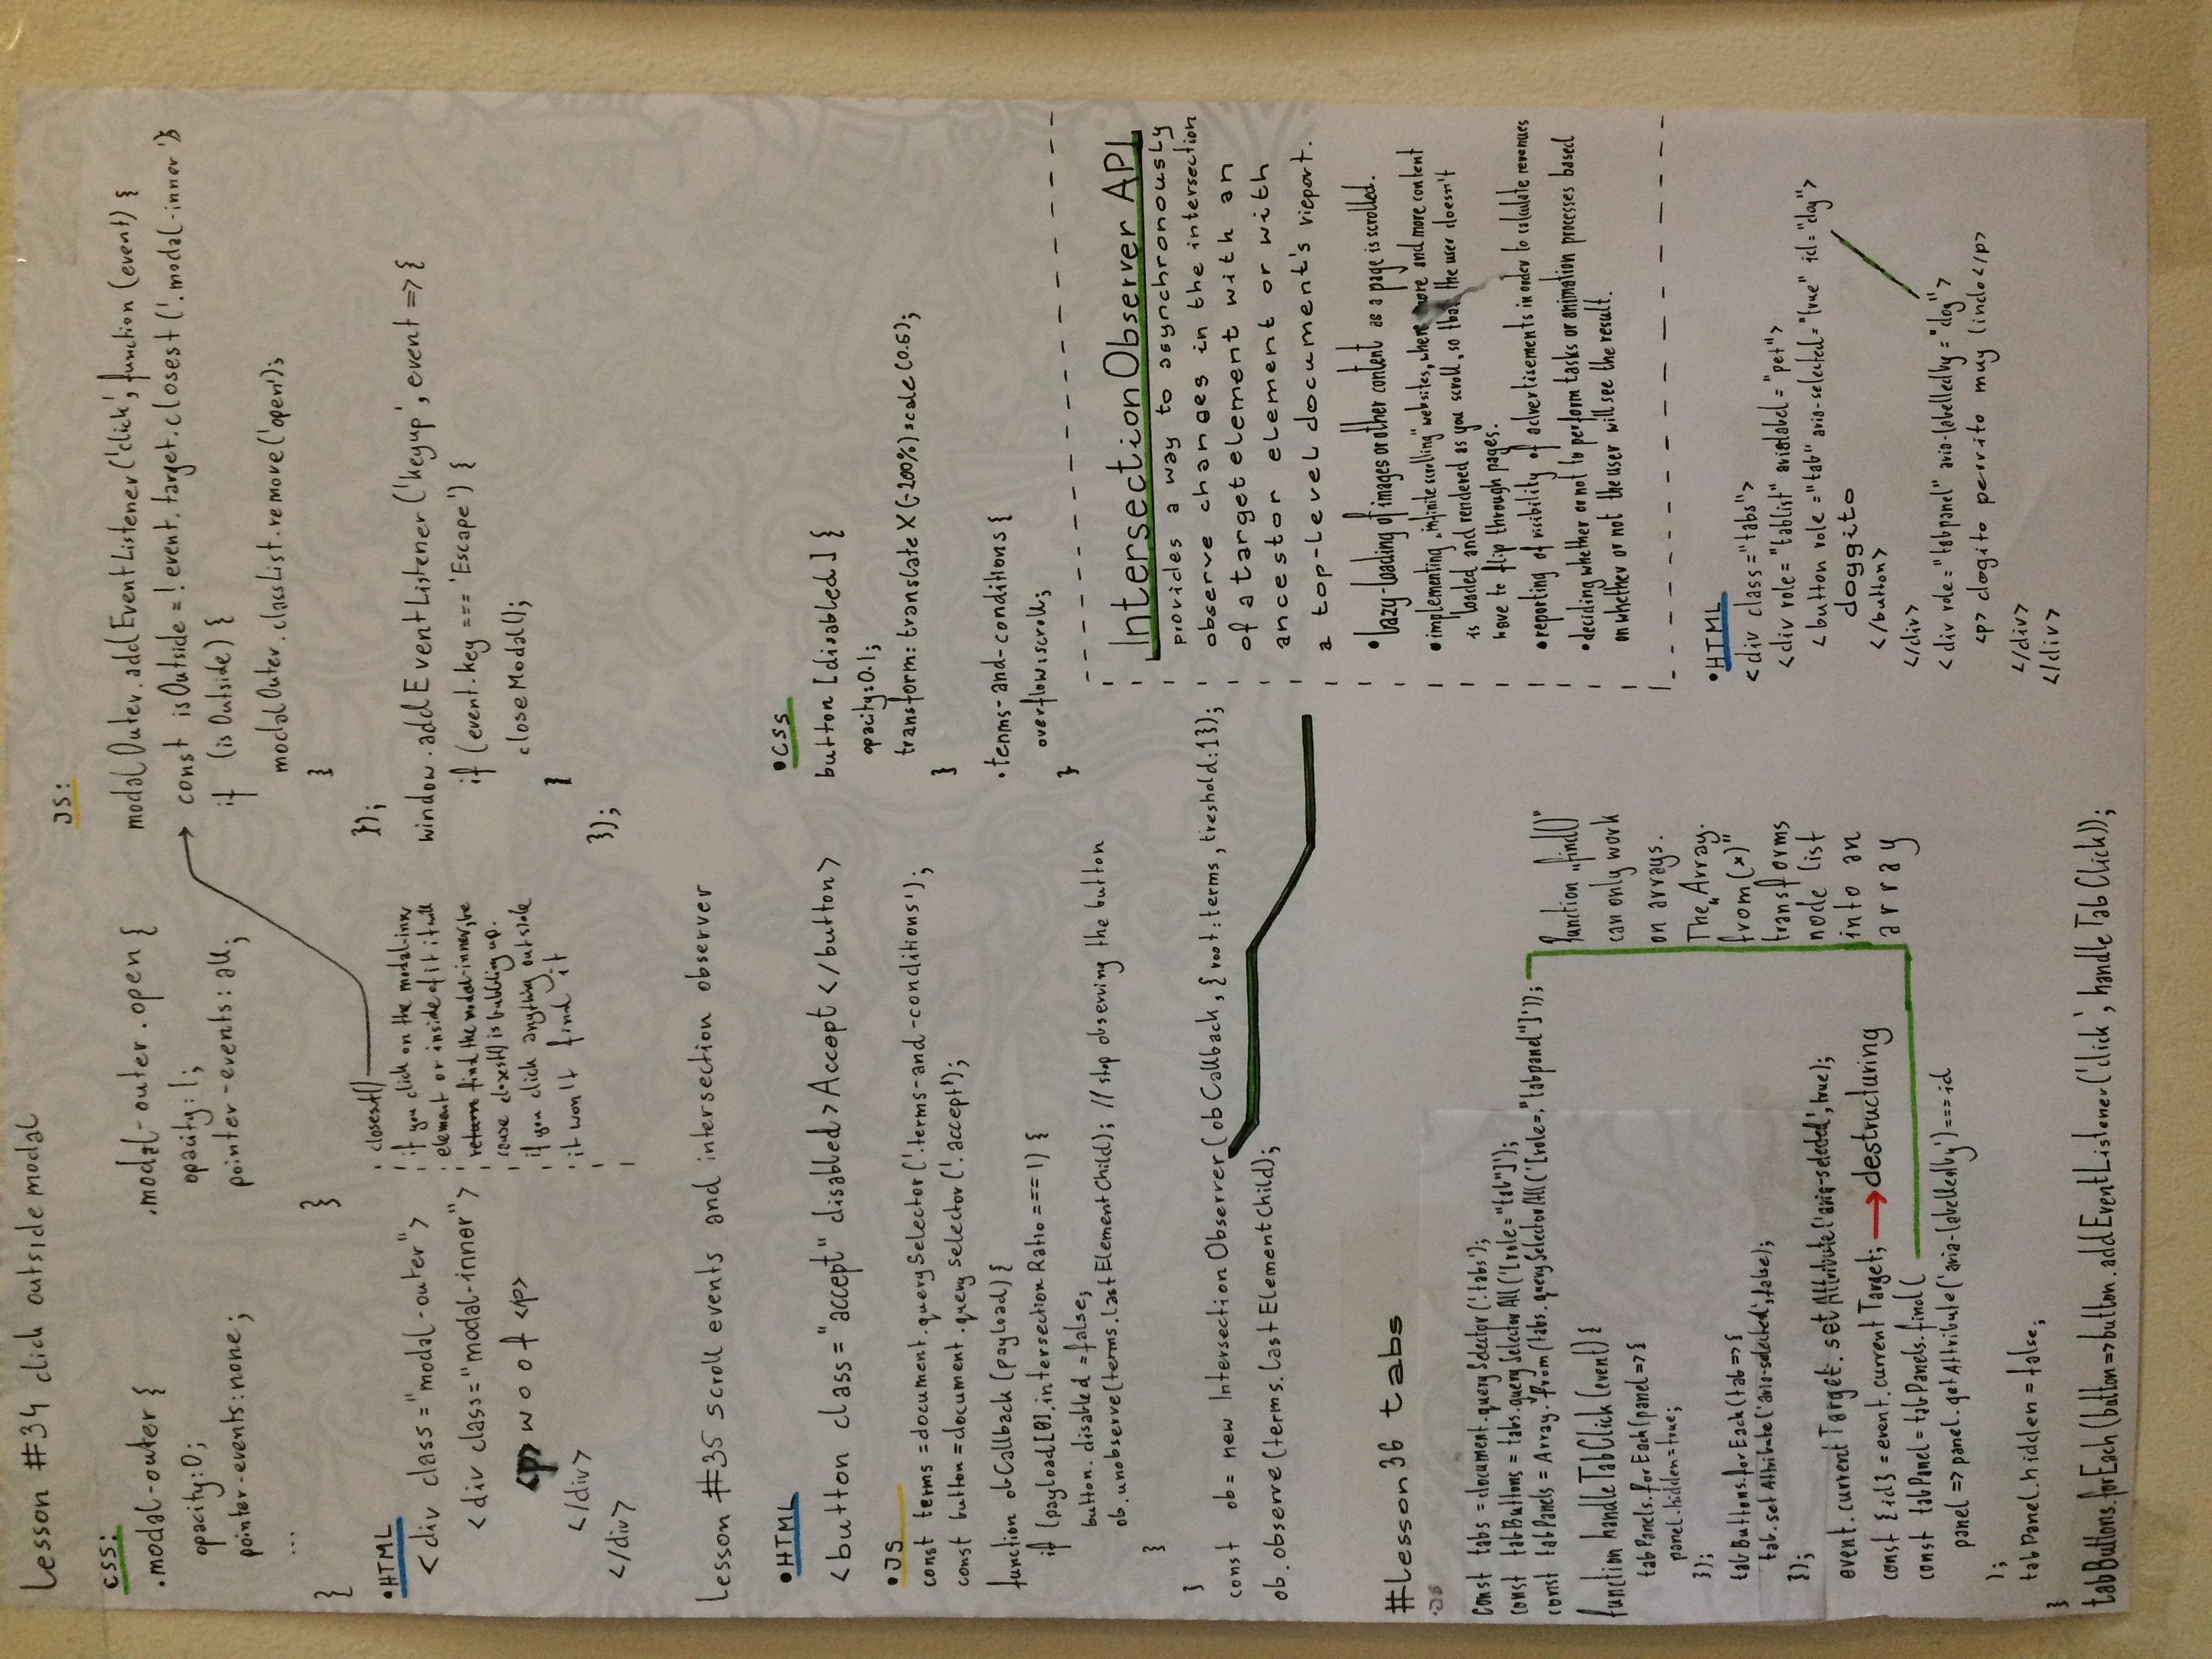 Lesson #34 click outside modal
css:
.modal-outer {
opacity:0;
pointer-events:none;
...
}
.modal-outer.open {
opacity:1;
pointer-events: all;
}
JS:
modalOuter.addEventListener('click', function (event) {
const isOutside = !event.target.closest('.modal-inner');
if (isOutside) {
modalOuter.classList.remove('open');
}
});
window.addEventListener('keyup', event => {
if (event.key === 'Escape') {
closeModal();
}
});
•HTML
<div class="modal-outer">
<div class="modal-inner">
<p> woof </p>
</div>
</div>
closest()
if you click on the modal-inner
element or inside of it it will
return find the modal-inner, be
cause closest() is bubbling up.
if you click anything outside
it won't find it
Lesson #35 scroll events and intersection observer
•HTML
<button class="accept" disabled>Accept</button>
•JS
const terms = document.querySelector('.terms-and-conditions');
const button = document.query selector('.accept');
function obCallback (payload) {
if (payload[0].intersectionRatio === 1) {
button.disabled = false;
ob.unobserve(terms.lastElementChild); // stop observing the button
}
}
const ob = new IntersectionObserver(obCallback, {root:terms, treshold:1});
ob.observe(terms.lastElementChild);
•CSS
button [disabled] {
opacity:0.1;
transform: translateX(-200%) scale(0.5);
}
.terms-and-conditions {
overflow:scroll;
}
Intersection Observer API
provides a way to asynchronously
observe changes in the intersection
of a target element with an
ancestor element or with
a top-level document's vieport.
•lazy-loading of images or other content as a page is scrolled.
•implementing „infinite scrolling" websites, where more and more content
is loaded and rendered as you scroll, so that the user doesn't
have to flip through pages.
•reporting of visibility of advertisements in order to calculate revenues
•deciding whether or not to perform tasks or animation processes based
on whether or not the user will see the result.
#Lesson 36 tabs
•JS
const tabs = document.querySelector('.tabs');
const tabButtons = tabs.querySelectorAll('[role="tab"]');
const tabPanels = Array.from(tabs.querySelectorAll('[role="tabpanel"]'));
function handleTabClick (event) {
tabPanels.forEach(panel => {
panel.hidden=true;
});
tabButtons.forEach(tab => {
tab.setAttribute('aria-selected', false);
});
event.currentTarget.setAttribute('aria-selected', true);
const {id} = event.currentTarget; → destructuring
const tabPanel = tabPanels.find(
panel => panel.getAttribute('aria-labelledby') === id
);
tabPanel.hidden = false;
}
tabButtons.forEach(button => button.addEventListener('click', handleTabClick));
Function „find()"
can only work
on arrays.
The „Array.
from(x)"
transforms
node list
into an
array
•HTML
<div class="tabs">
<div role="tablist" arialabel="pet">
<button role="tab" aria-selected="true" id="dog">
doggito
</button>
</div>
<div role="tabpanel" aria-labelledby="dog">
<p> dogito perrito muy lindo</p>
</div>
</div>